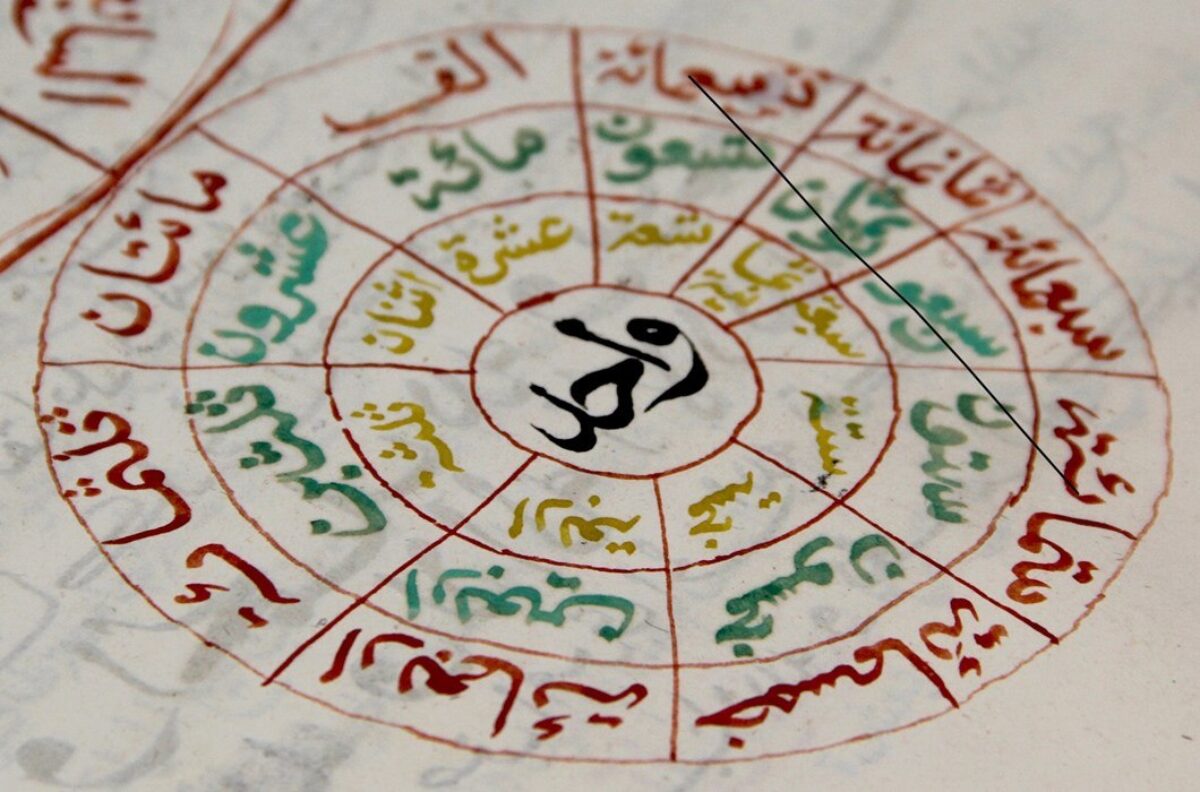 واحد
اثنان
ثلثة
اربعة
خمسة
ستة
سبعة
ثمانية
تسعة
عشرة
عشرون
ثلثين
اربعين
خمسون
ستون
سبعون
ثمانون
تسعون
مائة
مائتان
ثلثمائة
اربعمائة
خمسمائة
ستمائة
سبعمائة
ثمانمائة
تسعمائة
الف